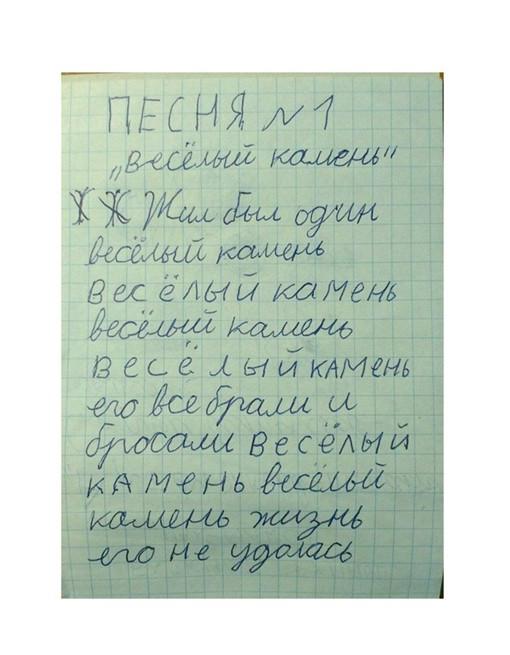 ПЕСНЯ N 1
„весёлый камень"
Ж Ж Жил был один
весёлый камень
весёлый камень
весёлый камень
весёлый камень
его все брали и
бросали весёлый
камень весёлый
камень жизнь
его не удалась